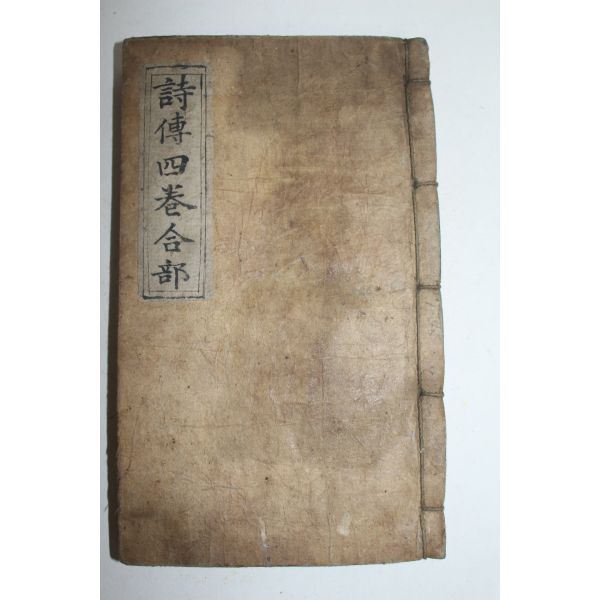 詩傳四卷合部